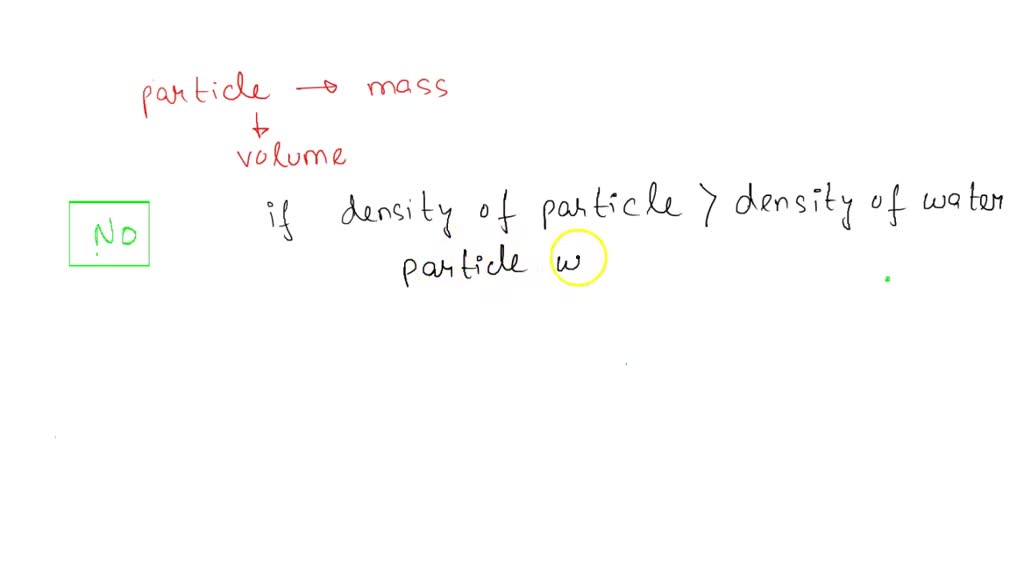 particle → mass
↓
volume
if density of particle > density of water
No
particle w